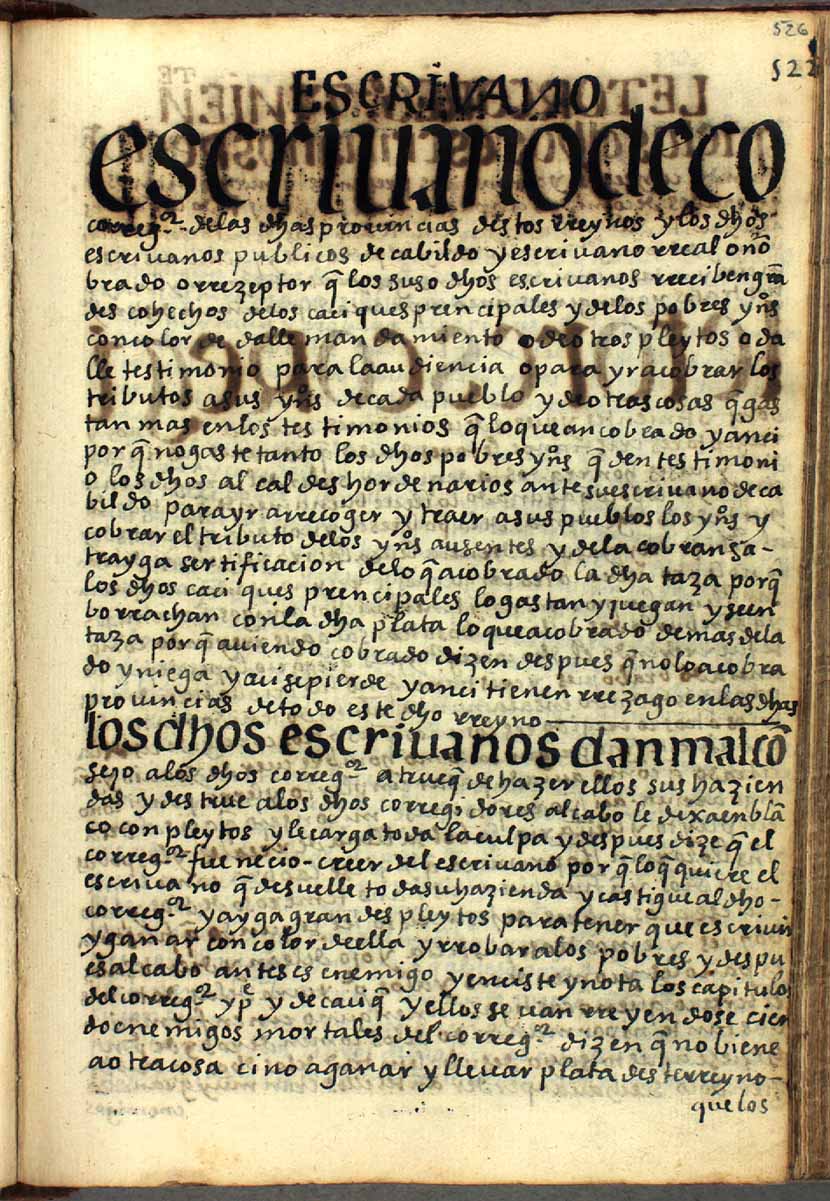 526
522
ESCRIVANO
escriuano de co
correg.or de las dhas prouincias destos rreynos y los dhos
escriuanos publicos de cabildo y escriuano rreal o nõ
brado o rrezeptor q̃ los suso dhos escriuanos rreciben grã
des cohechos de los caciques prencipales y de los pobres yn̊s
con color de dalle mandamiento o de otros pleytos o da
lle testimonio para la audiencia o para yr a cobrar los
tributos a sus yn̊s de cada pueblo y de otras cosas q̃ gas
tan mas en los testimonios q̃ lo que an cobrado y anci
por q̃ no gaste tanto los dhos pobres yn̊s q̃ den testimoni
o los dhos alcaldes hordenarios ante su escriuano de ca
bildo para yr a rrecoger y traer a sus pueblos los yn̊s y
cobrar el tributo de los yn̊s ausentes y de la cobransa-
trayga sertificacion de lo q̃ a cobrado la dha taza porq̃
los dhos caciques prencipales lo gastan y juegan y se en
borrachan con la dha plata lo que a cobrado demas de la
taza por q̃ auiendo cobrado dizen despues q̃ no lo a cobra
do y niega y aci se pierde y anci tienen rrezago en las dhas
prouincias de todo este dho rreyno
los dhos escriuanos dan mal cõ
sejo a los dhos correg.or a trueq̃ de hazer ellos sus hazien
das y destrue a los dhos corregidores al cabo le dexa en blã
co con pleytos y le carga toda la culpa y despues dize q̃ el
correg.or fue necio-creer del escriuano por q̃ lo q̃ quiere el
escriuano q̃ desuelle toda su hazienda y castigue al dho-
correg.or y ayga grandes pleytos para tener que escriuir
y ganar con color de ella y rrobar a los pobres y despu
es al cabo antes es enemigo y enciste y nota los capitulos
del correg.or y pe y de caciq̃ y ellos se uan rreyendose cien
do enemigos mortales del correg.or dizen q̃ no biene
a otra cosa cino a ganar y lleuar plata deste rreyno-
que los